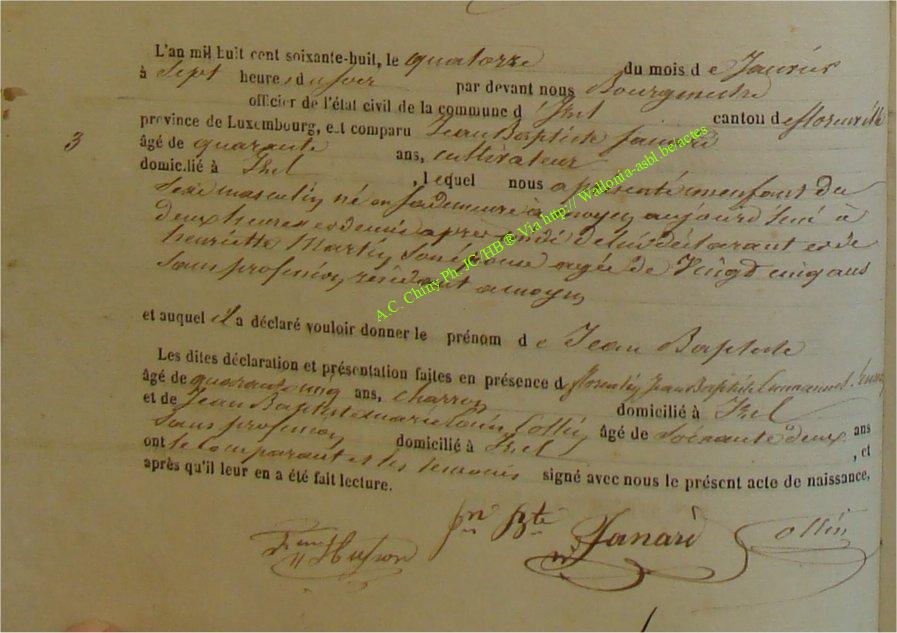 L'an mil huit cent soixante-huit, le quatorze du mois de Janvier
à Sept heures du soir par devant nous Bourgmestre
officier de l'état civil de la commune d'Izel canton de florenville
3
province de Luxembourg, est comparu Jean Baptiste
âgé de quarante ans, cultivateur
domicilié à Izel , lequel nous a présenté un enfant du
Sexe masculin né en Sa demeure à moyen aujourd'hui à
deux heures et demie après midi de lui déclarant et de
henriette Martin Son épouse agée de Vingt cinq ans
Sans profession résident a moyen
et auquel il a déclaré vouloir donner le prénom de Jean Baptiste
Les dites déclaration et présentation faites en présence de florentin Jean Baptiste Emmanuel
âgé de quarante cinq ans, charron domicilié à Izel
et de Jean Baptiste marie Louis Collin âgé de Soixante deux ans
Sans profession domicilié à Izel , et
ont le comparant et les témoins signé avec nous le présent acte de naissance,
après qu'il leur en a été fait lecture.
Husson
Jn Bte
Janari
Collin
A.C. Chiny Ph. JC/HB ® Via http:// Wallonia-asbl.be/actes